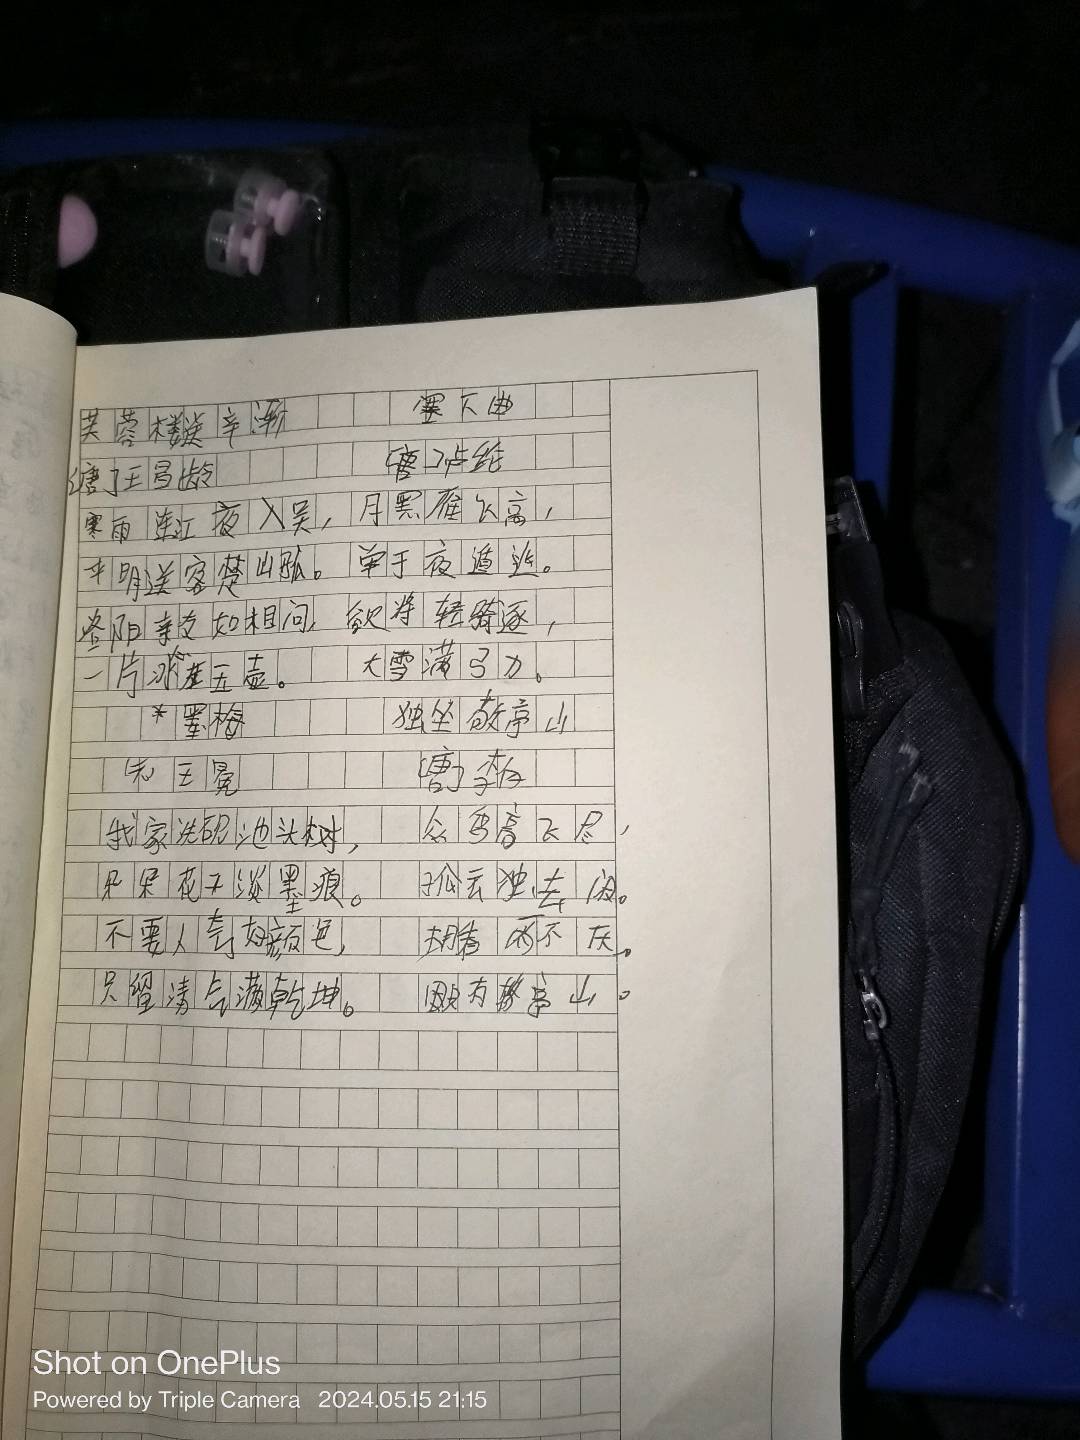 芙蓉楼送辛渐
[唐]王昌龄
寒雨连江夜入吴,
平明送客楚山孤。
洛阳亲友如相问,
一片冰在玉壶。
*墨梅
王冕
我家洗砚池头树,
朵朵花开淡墨痕。
不要人夸好颜色,
只留清气满乾坤。
塞下曲
[唐]卢纶
月黑雁飞高,
单于夜遁逃。
欲将轻骑逐,
大雪满弓刀。
独坐敬亭山
[唐]李白
众鸟高飞尽,
孤云独去闲。
相看两不厌。
只有敬亭山。
Shot on OnePlus
Powered by Triple Camera 2024.05.15 21:15